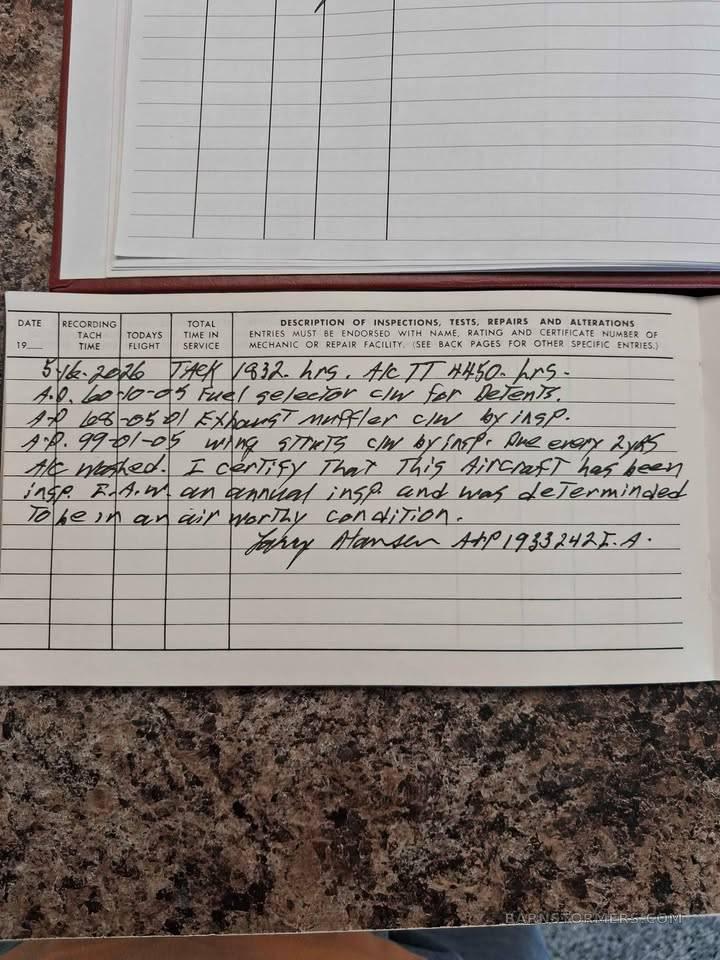 DATE
19___
RECORDING TACH TIME
TODAYS FLIGHT
TOTAL TIME IN SERVICE
DESCRIPTION OF INSPECTIONS, TESTS, REPAIRS AND ALTERATIONS
ENTRIES MUST BE ENDORSED WITH NAME, RATING AND CERTIFICATE NUMBER OF
MECHANIC OR REPAIR FACILITY. (SEE BACK PAGES FOR OTHER SPECIFIC ENTRIES.)
5-16-2026 TACK 1932. hrs. A/C TT 4450. hrs.
A.D. 60-10-05 Fuel selector c/w for Detents.
A.D 68-05-01 Exhaust muffler c/w by insp.
A.D. 99-01-05 wing struts c/w by insp. Due every 2 yrs
A/C washed. I certify That This Aircraft has been
insp. I.A.W. an annual insp. and was determinded
To be in an air worthy condition.
Larry Hansen A+P 1933242 I.A.
BARNSTORMERS.COM